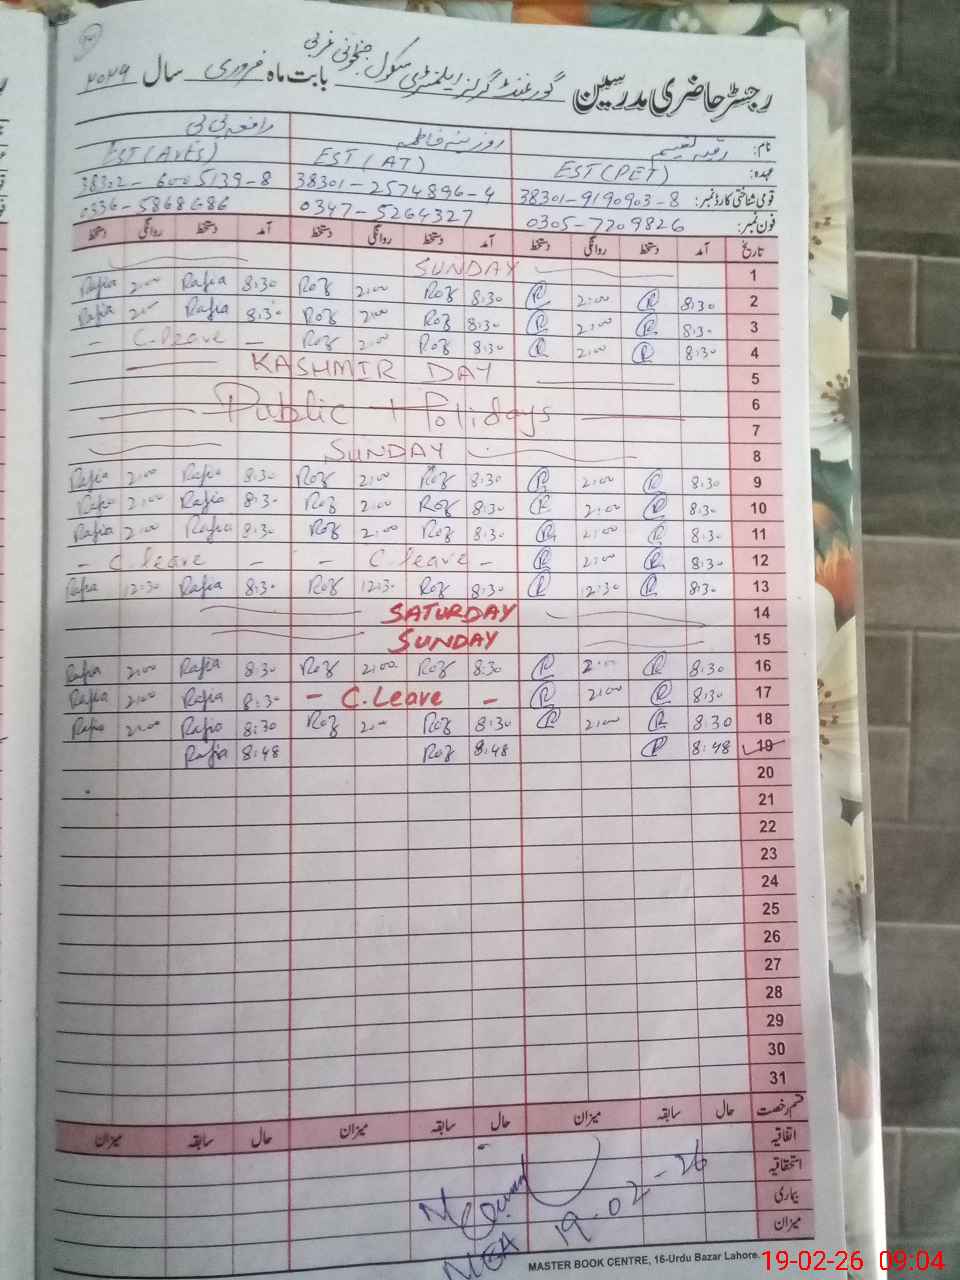 رجسٹر حاضری مدرسین گورنمنٹ گرلز ایلیمنٹری سکول غربی بابت ماہ فروری سال
نام: فاطمہ رافعہ بی بی
عہدہ: EST(PET) EST(AT) EST(AVES)
قومی شناختی کارڈ نمبر: 38301-9190903-8 38301-2574896-4 38302-6005139-8
فون نمبر: 0305-7209826 0347-5264327 0336-5868686
تاریخ آمد دستخط روانگی دستخط آمد دستخط روانگی دستخط آمد دستخط روانگی دستخط
SUNDAY 1
Rafia 2:00 Rafia 8:30 Roz 2:00 Roz 8:30 R 2:00 R 8:30 2
Rafia 2:00 Rafia 8:30 Roz 2:00 Roz 8:30 R 2:00 R 8:30 3
- C.leave - Roz 2:00 Roz 8:30 R 2:00 R 8:30 4
KASHMIR DAY 5
6
Public Holidays
7
SUNDAY 8
Rafia 2:00 Rafia 8:30 Roz 2:00 Roz 8:30 R 2:00 R 8:30 9
Rafia 2:00 Rafia 8:30 Roz 2:00 Roz 8:30 R 2:00 R 8:30 10
Rafia 2:00 Rafia 8:30 Roz 2:00 Roz 8:30 R 2:00 R 8:30 11
- C.leave - - C.leave - R 2:00 R 8:30 12
Rafia 12:30 Rafia 8:30 Roz 12:30 Roz 8:30 R 12:30 R 8:30 13
SATURDAY 14
SUNDAY 15
Rafia 2:00 Rafia 8:30 Roz 2:00 Roz 8:30 R 2:00 R 8:30 16
Rafia 2:00 Rafia 8:30 - C.Leave - R 2:00 R 8:30 17
Rafia 2:00 Rafia 8:30 Roz 2:00 Roz 8:30 R 2:00 R 8:30 18
Rafia 8:48 Roz 8:48 R 8:48 19
20
21
22
23
24
25
26
27
28
29
30
31
قسم رخصت حال سابقہ میزان حال سابقہ میزان حال سابقہ میزان
اتفاقیہ
استحقاقیہ
بیماری
میزان
MEA 19-02-26
MASTER BOOK CENTRE, 16-Urdu Bazar Lahore.
19-02-26 09:04